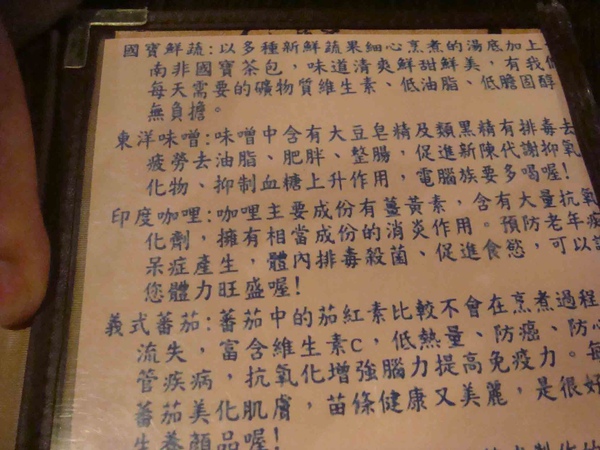 國寶鮮蔬:以多種新鮮蔬果細心烹煮的湯底加上
南非國寶茶包，味道清爽鮮甜鮮美，有我們
每天需要的礦物質維生素、低油脂、低膽固醇
無負擔。
東洋味噌:味噌中含有大豆皂精及類黑精有排毒去
疲勞去油脂、肥胖、整腸，促進新陳代謝抑氧
化物、抑制血糖上升作用，電腦族要多喝喔!
印度咖哩:咖哩主要成份有薑黃素，含有大量抗氧
化劑，擁有相當成份的消炎作用。預防老年痴
呆症產生，體內排毒殺菌、促進食慾，可以讓
您體力旺盛喔!
義式蕃茄:蕃茄中的茄紅素比較不會在烹煮過程
流失，富含維生素C，低熱量、防癌、防心
管疾病，抗氧化增強腦力提高免疫力。每
蕃茄美化肌膚，苗條健康又美麗，是很好
生養顏品喔!